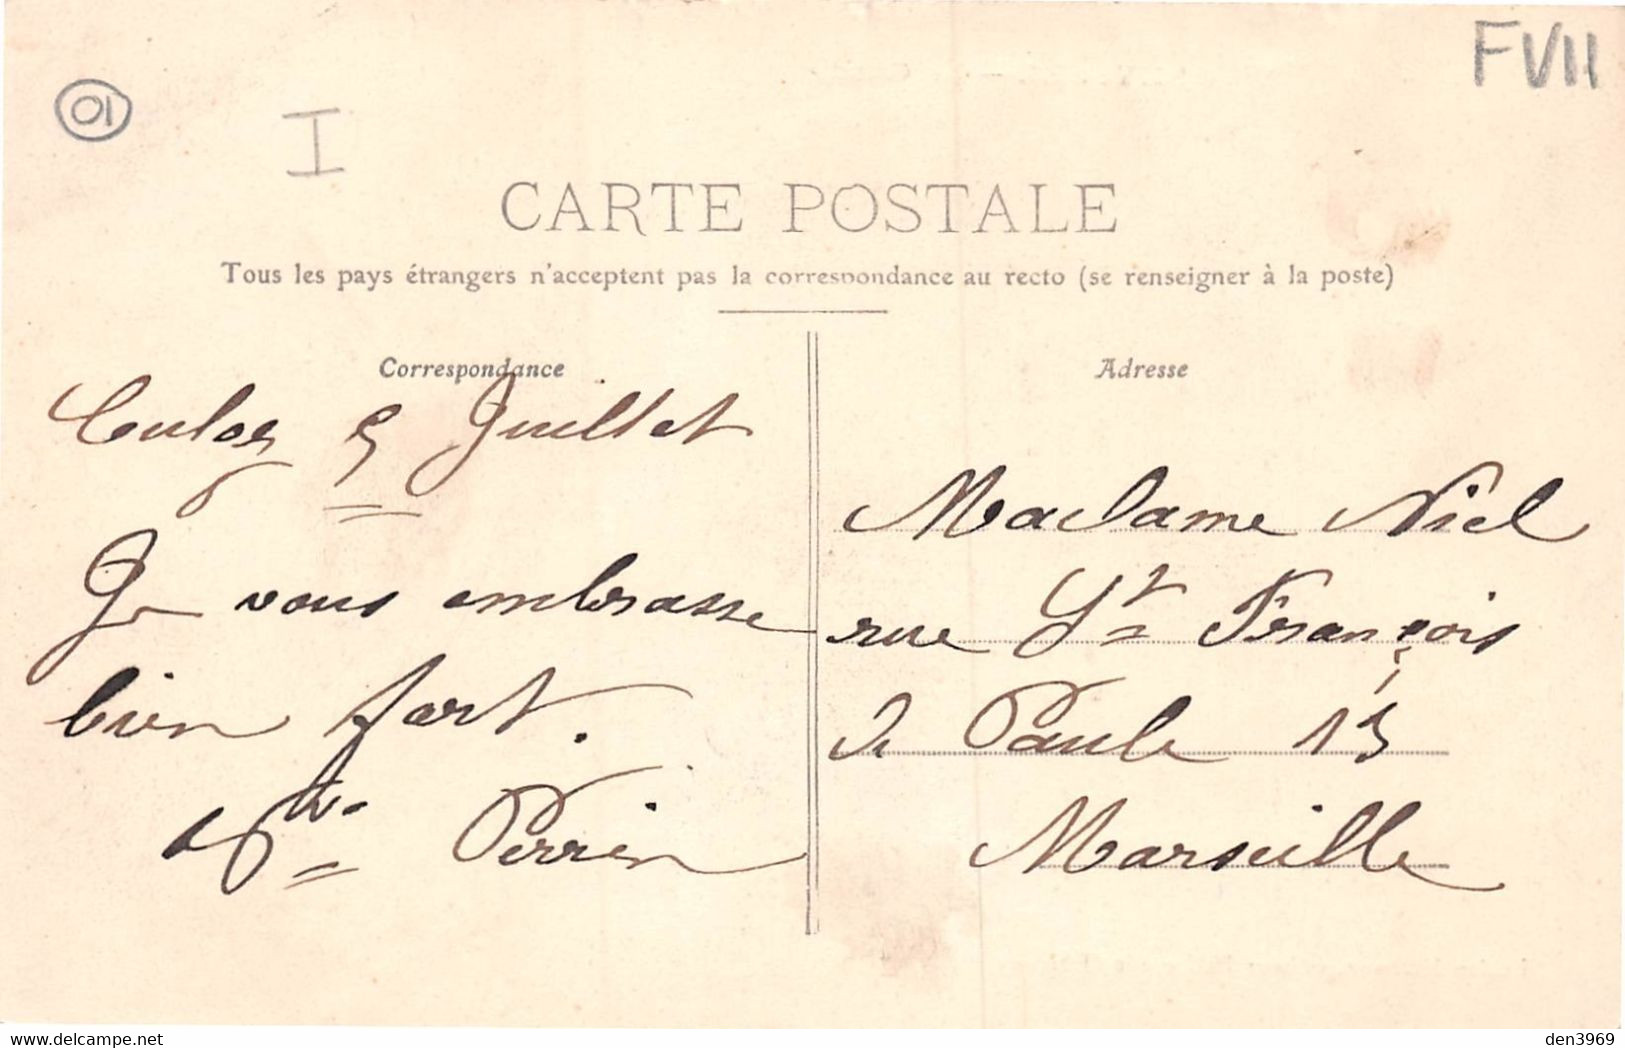 FVII
01
I
CARTE POSTALE
Tous les pays étrangers n'acceptent pas la correspondance au recto (se renseigner à la poste)
Correspondance
Culoz 5 Juillet
Je vous embrasse
bien fort.
Vve Perrin
Adresse
Madame Niel
rue St François
de Paule 13
Marseille
den3969